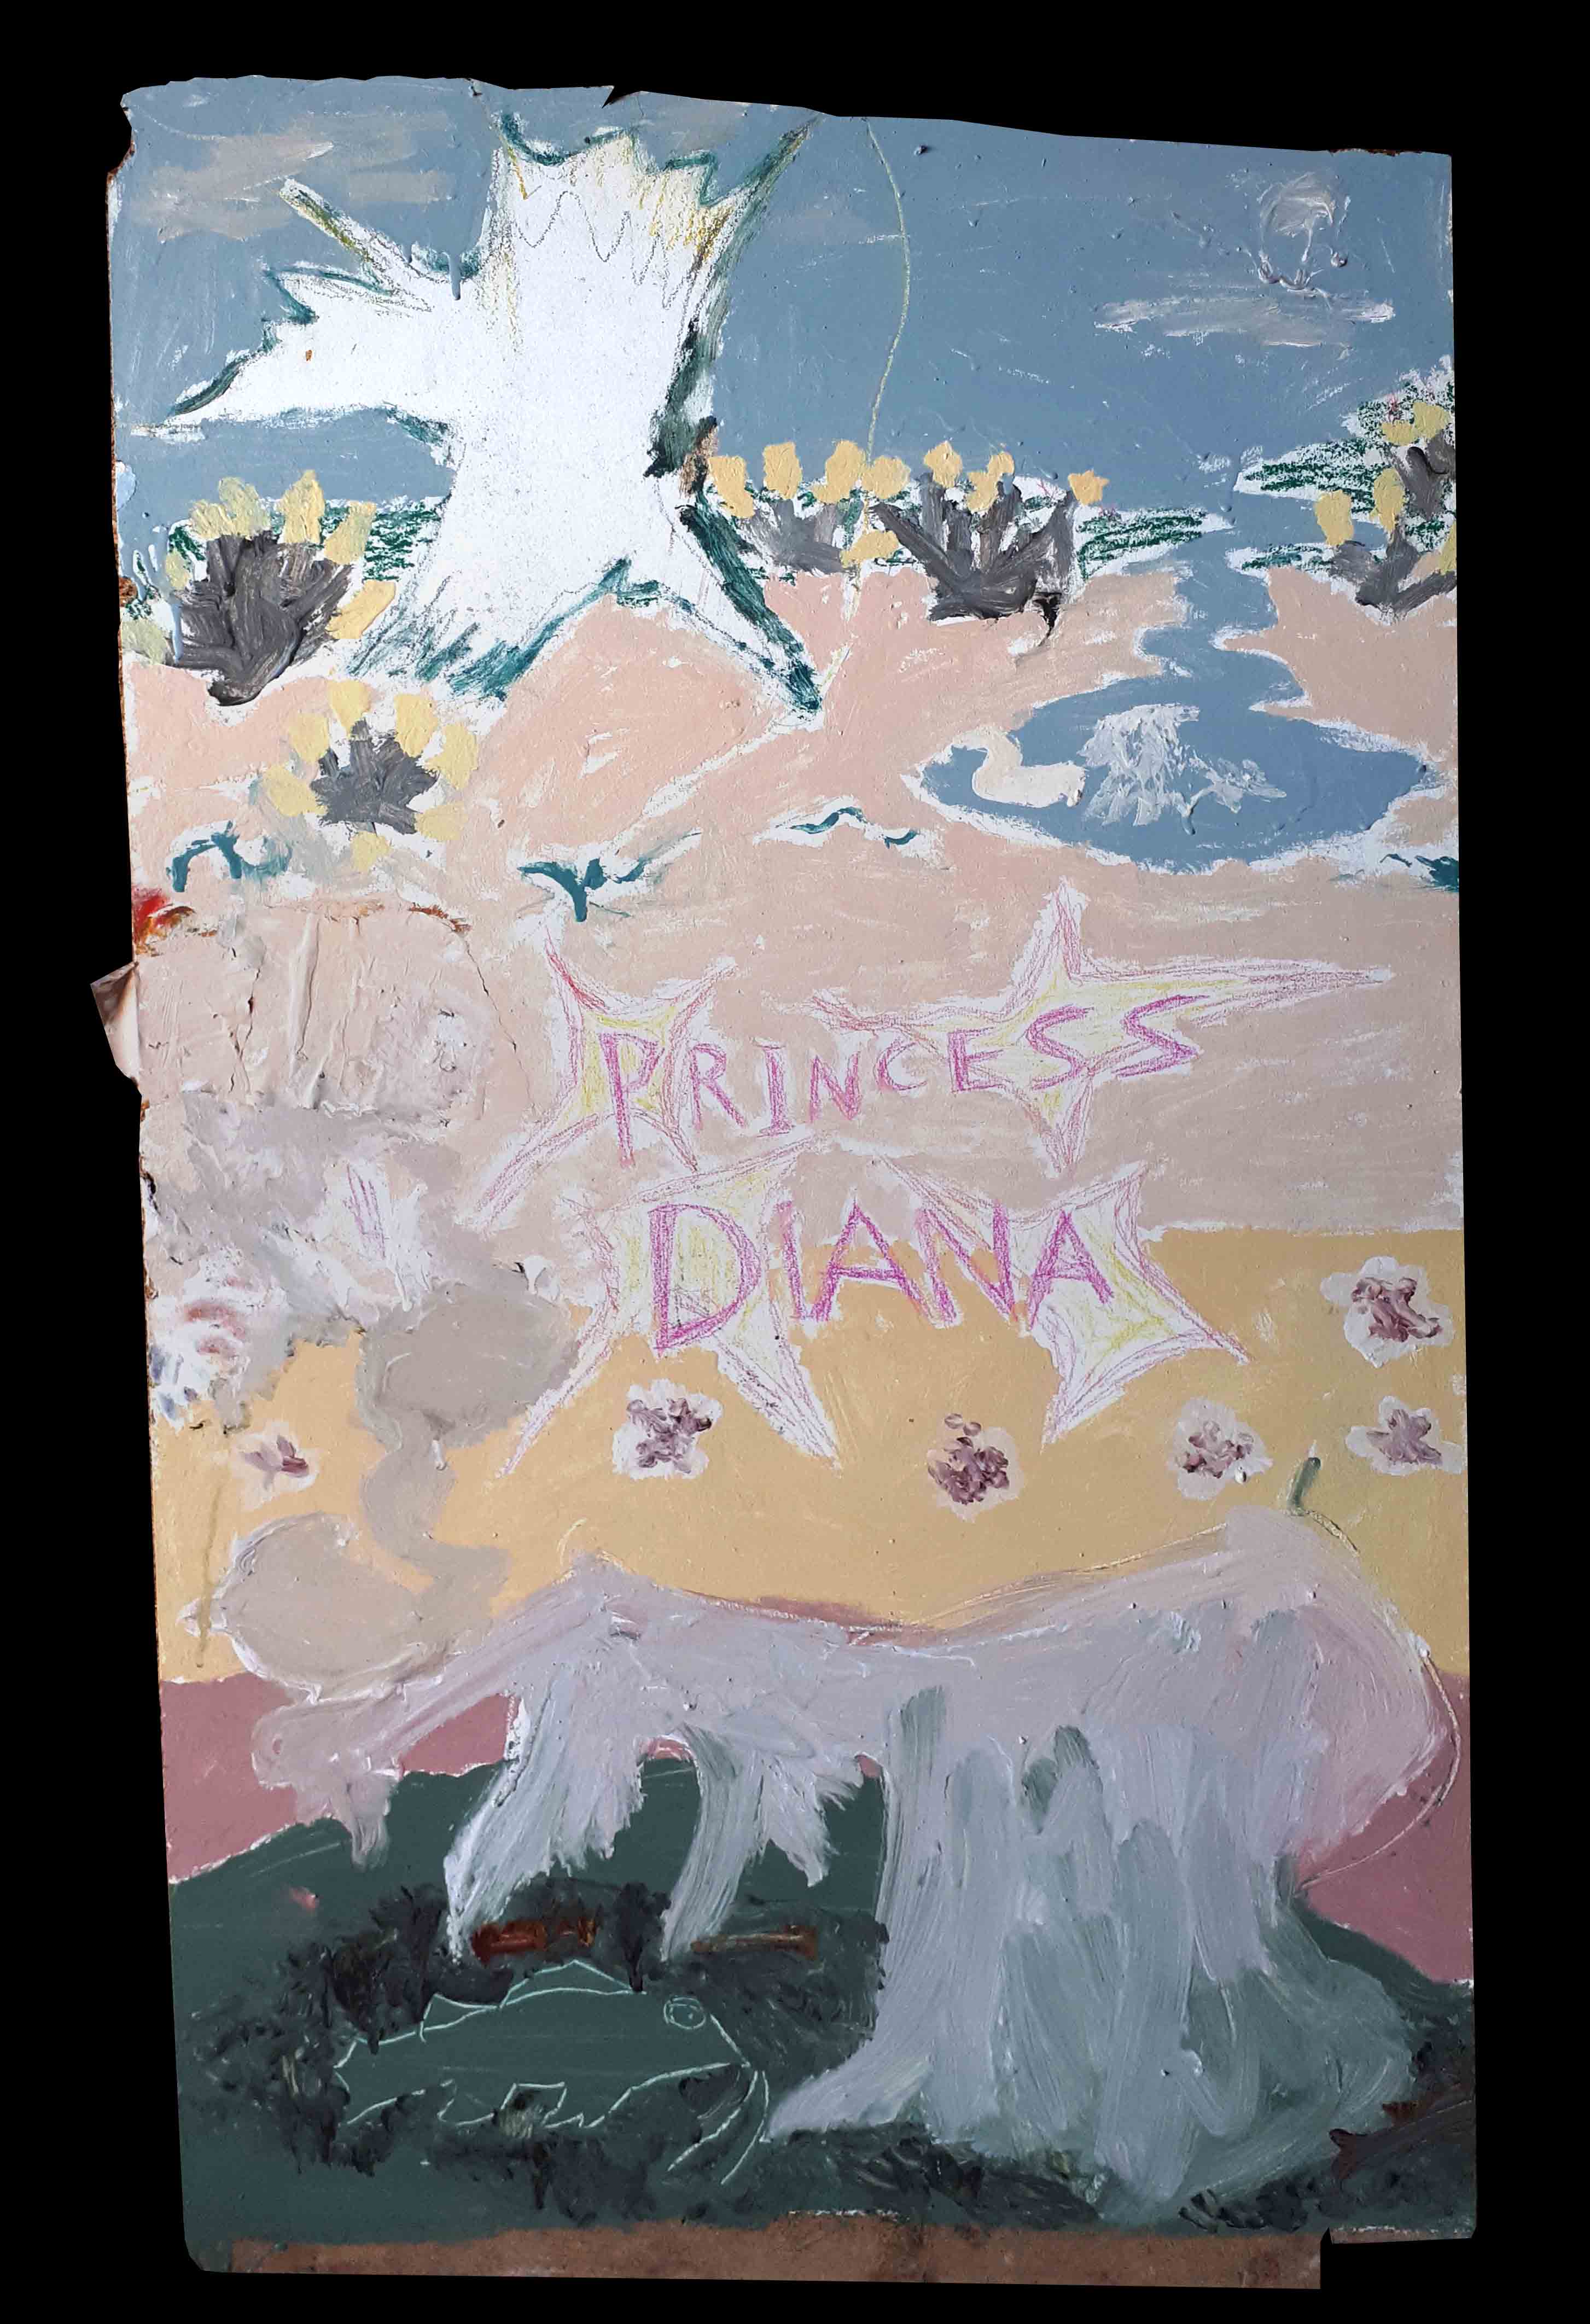 PRINCESS
DIANA